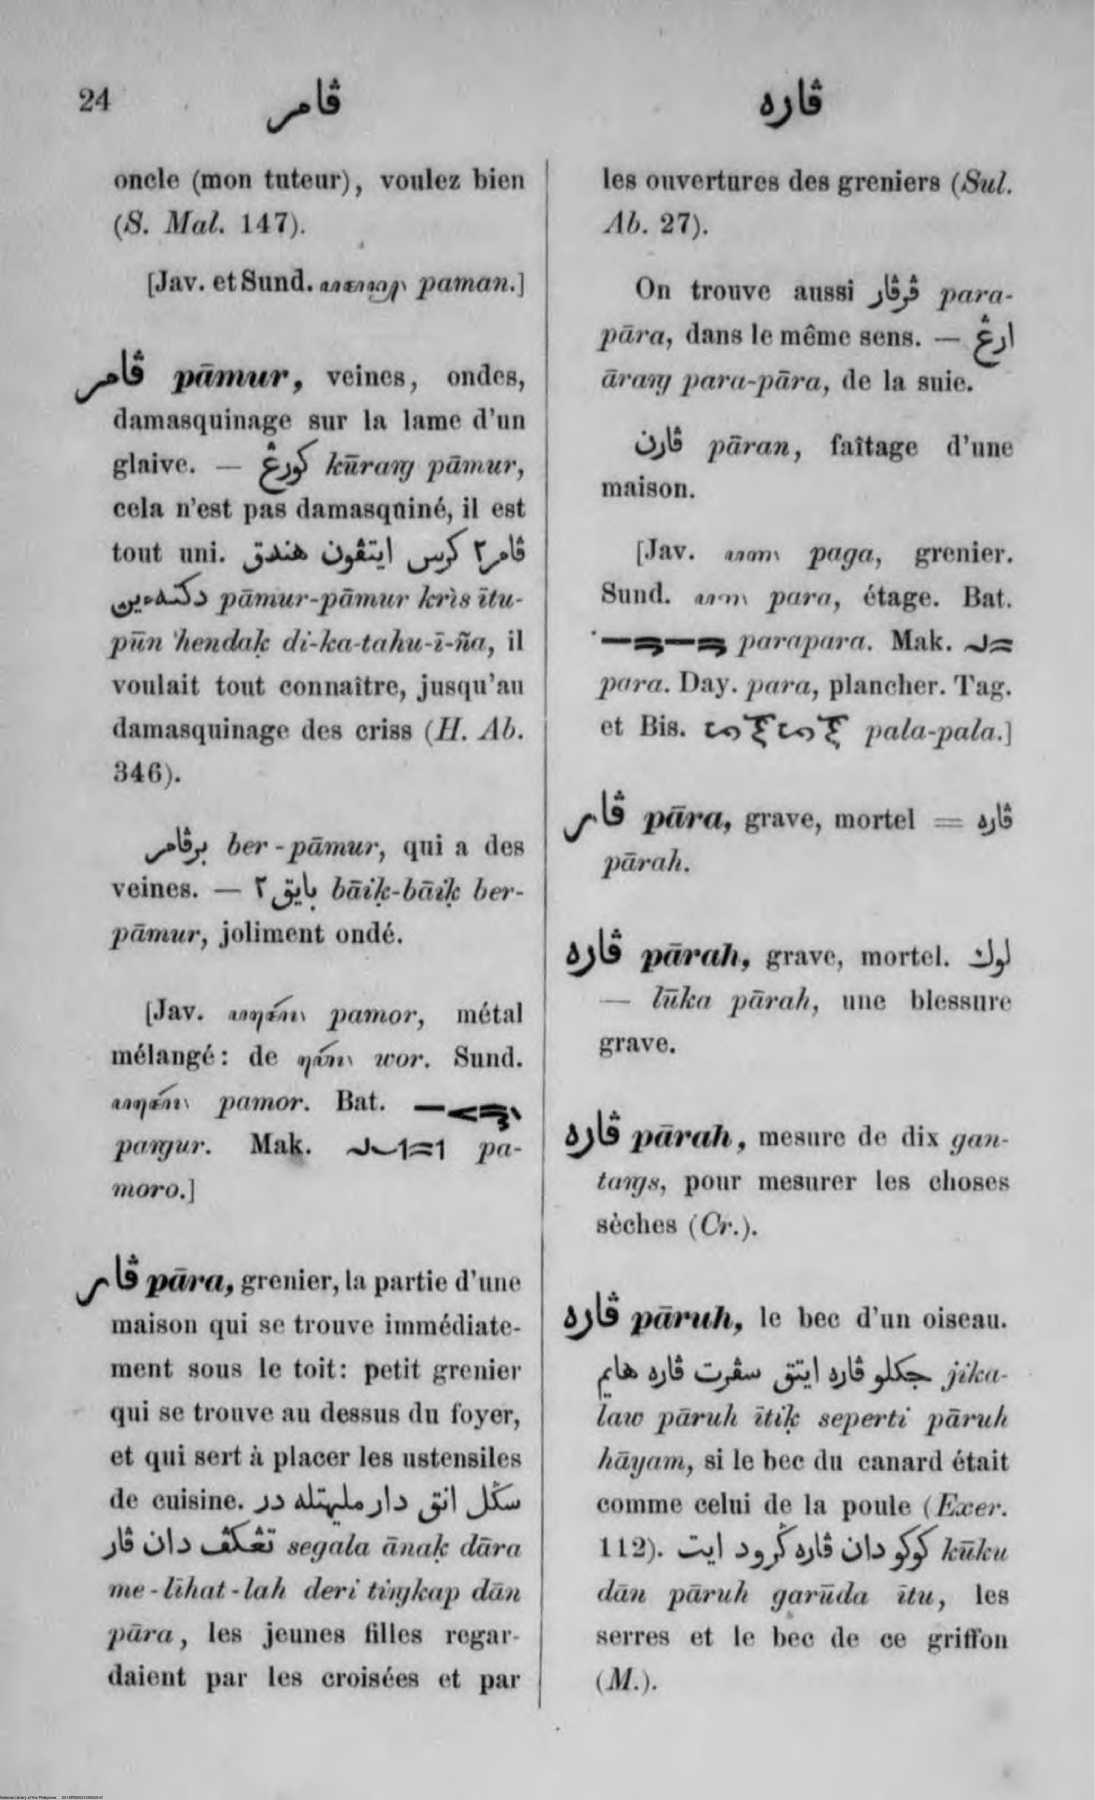 24
ڤامر
ڤاره
oncle (mon tuteur), voulez bien
(S. Mal. 147).
[Jav. et Sund. paman.]
ڤامر pāmur, veines, ondes,
damasquinage sur la lame d'un
glaive. — كورڠ kūraņg pāmur,
cela n'est pas damasquiné, il est
tout uni. ڤامر٢ كريس ايتڤون هندق
pāmur-pāmur krìs ītu-
pūn hendaḳ di-ka-tahu-ī-ña, il
voulait tout connaître, jusqu'au
damasquinage des criss (H. Ab.
346).
برڤامر ber-pāmur, qui a des
veines. — بايق٢ bāiḳ-bāiḳ ber-
pāmur, joliment ondé.
[Jav. pamor, métal
mélangé: de wor. Sund.
pamor. Bat.
paņgur. Mak. pa-
moro.]
ڤار pāra, grenier, la partie d'une
maison qui se trouve immédiate-
ment sous le toit: petit grenier
qui se trouve au dessus du foyer,
et qui sert à placer les ustensiles
de cuisine. سݢل انق دار مليهتله در
تڠكڤ دان ڤار segala ānaḳ dāra
me-līhat-lah deri tiņgkap dān
pāra, les jeunes filles regar-
daient par les croisées et par
les ouvertures des greniers (Sul.
Ab. 27).
On trouve aussi ڤرڤار para-
pāra, dans le même sens. — ارڠ
āraņg para-pāra, de la suie.
ڤارن pāran, faîtage d'une
maison.
[Jav. paga, grenier.
Sund. para, étage. Bat.
parapara. Mak.
para. Day. para, plancher. Tag.
et Bis. pala-pala.]
ڤار pāra, grave, mortel = ڤاره
pārah.
ڤاره pārah, grave, mortel. لوك
— lūka pārah, une blessure
grave.
ڤاره pārah, mesure de dix gan-
taņgs, pour mesurer les choses
sèches (Cr.).
ڤاره pāruh, le bec d'un oiseau.
جكلو ڤاره ايتق سڤرت ڤاره هايم jika-
law pāruh ītiḳ seperti pāruh
hāyam, si le bec du canard était
comme celui de la poule (Exer.
112). كوكو دان ڤاره ݢرود ايت kūku
dān pāruh garūda ītu, les
serres et le bec de ce griffon
(M.).